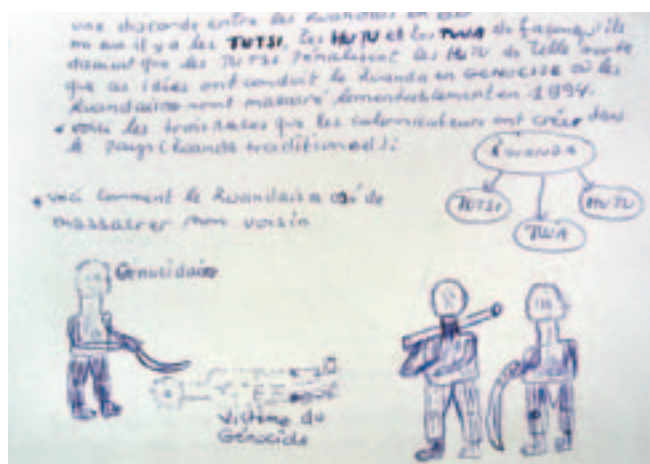 une discorde entre les Rwandais en
il y a les TUTSI, les HUTU et les TWA de façon qu'ils
disent que les TUTSI les HUTU de telle sorte
que ces idées ont conduit le Rwanda en où les
Rwandais ont lamentablement en 1994.
• voici les trois races que les colonisateurs ont créer dans
le pays (Rwanda traditionnel):
RWANDA
TUTSI
HUTU
TWA
• voici comment le Rwandais a osé de
massacrer mon voisin
Genocidaire
Victime du
Génocide